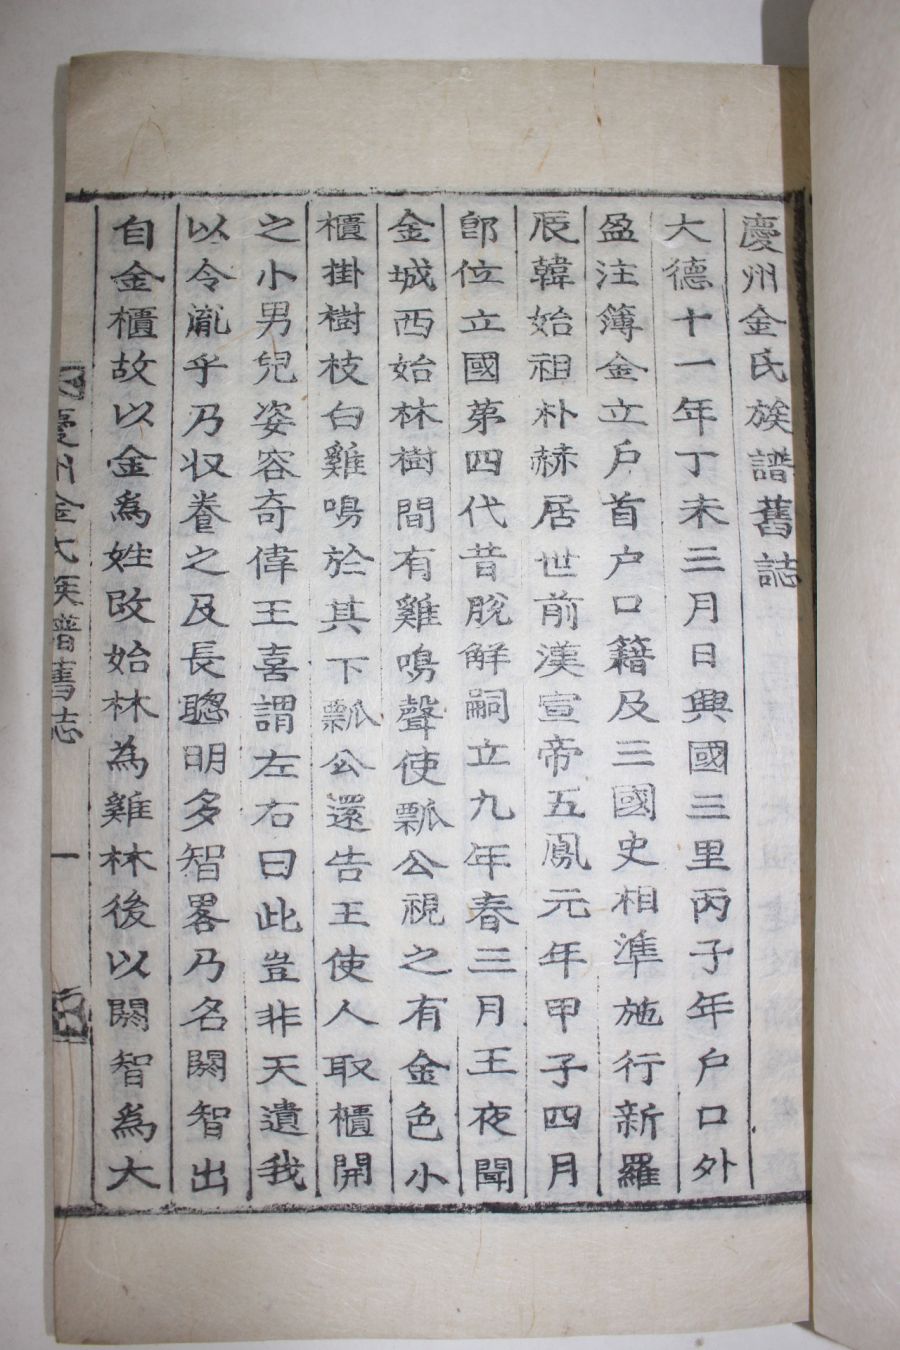 慶州金氏族譜舊誌
大德十一年丁未三月日興國三里丙子年戶口外
盈注簿金立戶首户口籍及三國史相準施行新羅
辰韓始祖朴赫居世前漢宣帝五鳳元年甲子四月
卽位立國第四代昔脫解嗣立九年春三月王夜聞
金城西始林樹間有雞鳴聲使瓢公視之有金色小
櫃掛樹枝白雞鳴於其下瓢公還告王使人取櫃開
之小男兒姿容奇偉王喜謂左右曰此豈非天遺我
以令胤乎乃収養之及長聰明多智畧乃名閼智出
自金櫃故以金爲姓改始林為雞林後以閼智爲大
慶州金氏族譜舊誌 一